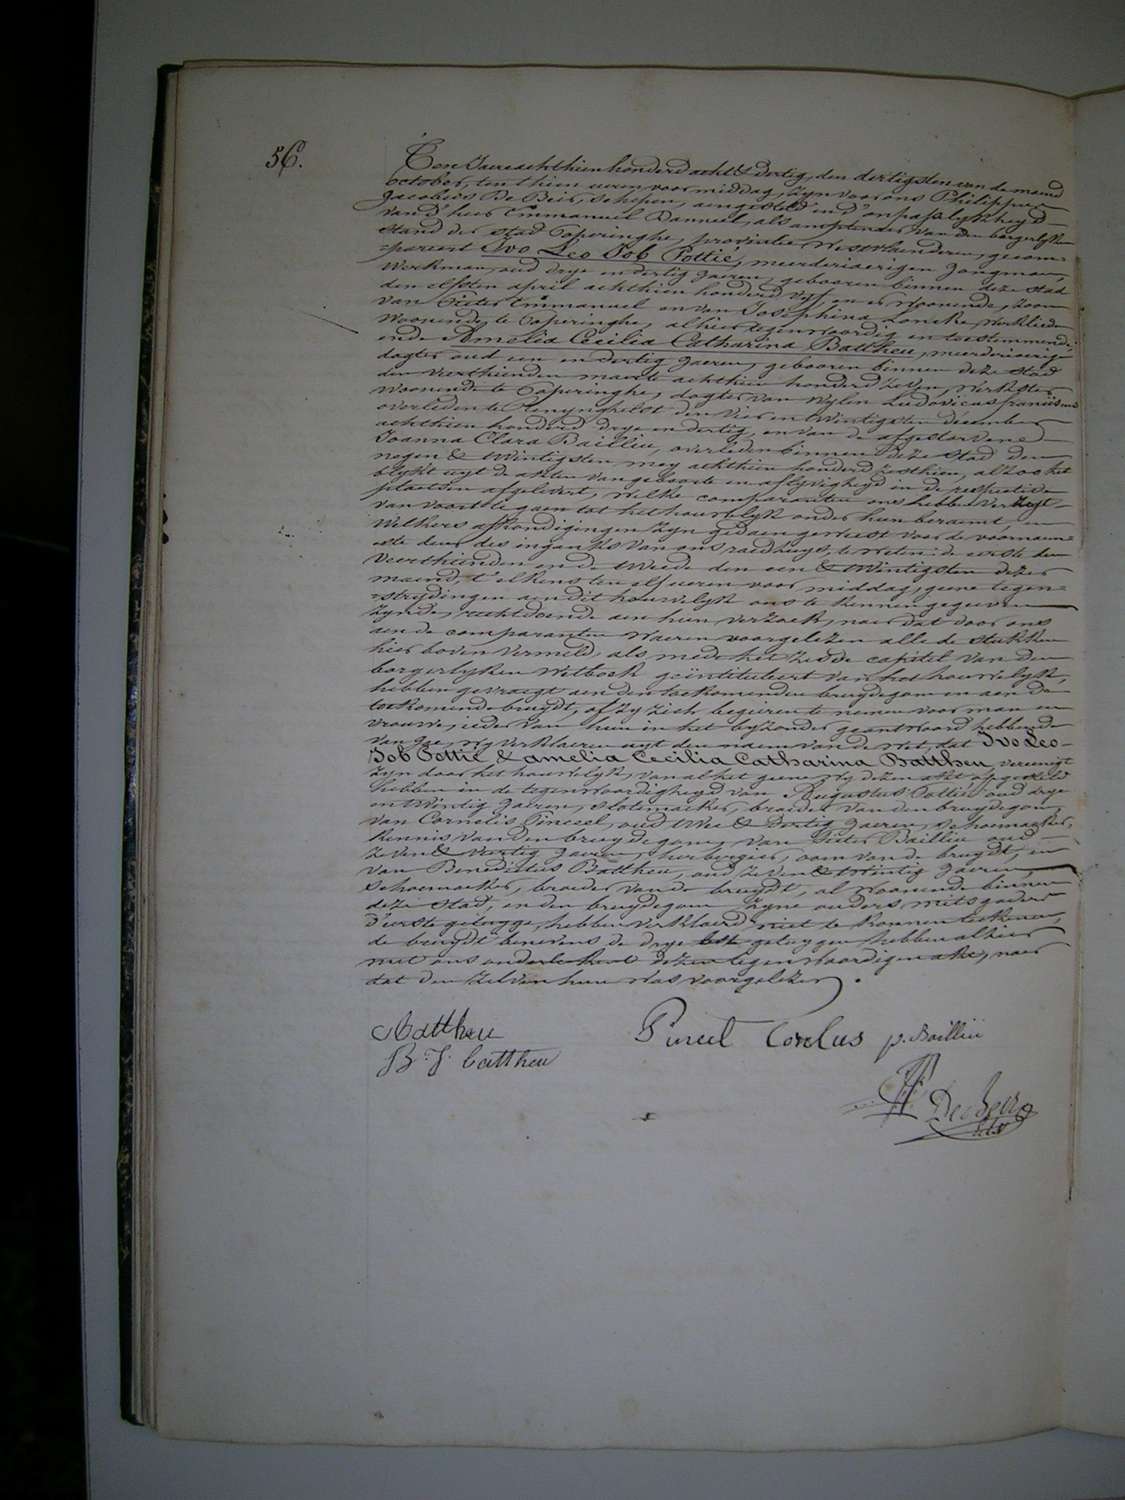 56.
Ten Jaere achthien honderd acht & dertig, den dertigsten van de maend
october, ten thien ueren voor middag, zyn voor ons Philippus
Jacobus De Beir, schepen, aengesteld in d'onpasselykheyd
van d'heer Emmanuel Vanneel, als amptenaer van den borgerlyken
stand der stad Poperinghe, provintie Westvlanderen, gecom=
=pareert Ivo Leo Job Pottié, meerderjaerigen jongman,
werkman, oud drye en dertig jaeren, gebooren binnen deze stad
den elfsten april achthien honderd vyf, en er woonende, zoon
van Pieter Emmanuel en van Josephina Loncke, werklieden
woonende te Poperinghe, alhier tegenwoordig en toestemmende
ende Amelia Cecilia Catharina Battheu, meerderjaerige
dogter oud een en dertig jaeren, gebooren binnen deze stad
den veerthienden maerte achthien honderd zeven, werkster
woonende te Poperinghe, dogter van wylen Ludovicus franciscus
overleden te Renynghelst den vier en twintigsten december
achthien honderd drye en dertig, en van de afgestorvene
Joanna Clara Baillieu, overleden binnen deze stad den
negen & twintigsten mey achthien honderd zesthien, alzoo het
blykt uyt de akten van geboorte en aflyvigheyd in de respective
plaetsen afgelevert, welke comparanten ons hebben verzogt
van voort te gaen tot het houwelyk onder hun beraemt, en
welkers afkondigingen zyn gedaen geweest voor de voornaem=
=ste deur des ingangs van ons raedhuys, te weten: de eerste den
veerthienden en de tweede den een & twintigsten dezer
maend, t'elkens ten elf ueren voor middag, geene tegen=
=strydingen aen dit houwelyk ons te kennen gegeven
zynde, rechtdoende aen hun verzoek, naer dat door ons
aen de comparanten waeren voorgelezen alle de stukken
hier boven vermeld, als mede het zesde capitel van den
borgerlyken wetboek geïntituleert van het houwelyk,
hebben gevraegt aen den toekomenden bruydegom en aen de
toekomende bruydt, of zy zich begeren te nemen voor man en
vrouwe, ieder van hun in het byzonder geantwoord hebbende
van Jae, wy verklaeren uyt den naem van de wet, dat Ivo Leo
Job Pottié & Amelia Cecilia Catharina Battheu, vereenigt
zyn door het houwelyk, van al het geene wy dezen akt opgesteld
hebben in de tegenwoordigheyd van Augustus Pottié oud drye
en twintig jaeren, slotemaeker, broeder van den bruydegom,
van Cornelis Pinceel, oud twee & dertig jaeren, schoenmaeker,
kennis van den bruydegom, van Pieter Baillieu oud
zeven & veertig jaeren, herbergier, oom van de bruydt, en
van Benedictus Battheu, oud zeven & twintig jaeren,
schoenmaeker, broeder van de bruydt, al woonende binnen
deze stad, en den bruydegom zyne ouders, mitsgaders
d'eerste getuyge, hebben verklaerd niet te konnen teekenen,
de bruydt benevens de drye getuygen hebben alhier
met ons onderteekent dezen tegenwoordigen akt, naer
dat den zelven hun was voorgelezen.
Battheu
B. J. Battheu
Pinceel Corelus
p. Baillieu
De Beir